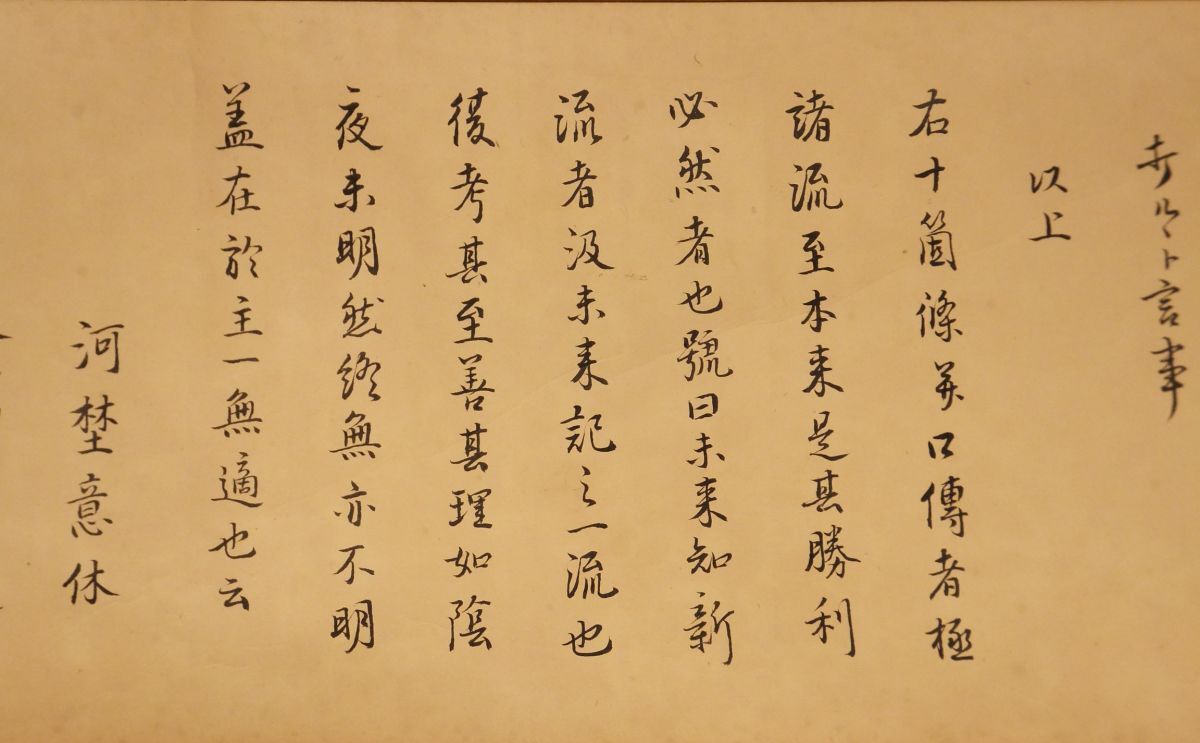 言事
以上
右十箇條并口傳者極
諸流至本来是其勝利
必然者也號曰未来知新
流者汲未来記之一流也
後考其至善其理如陰
夜未明然終無亦不明
蓋在於主一無適也云
河埜意休